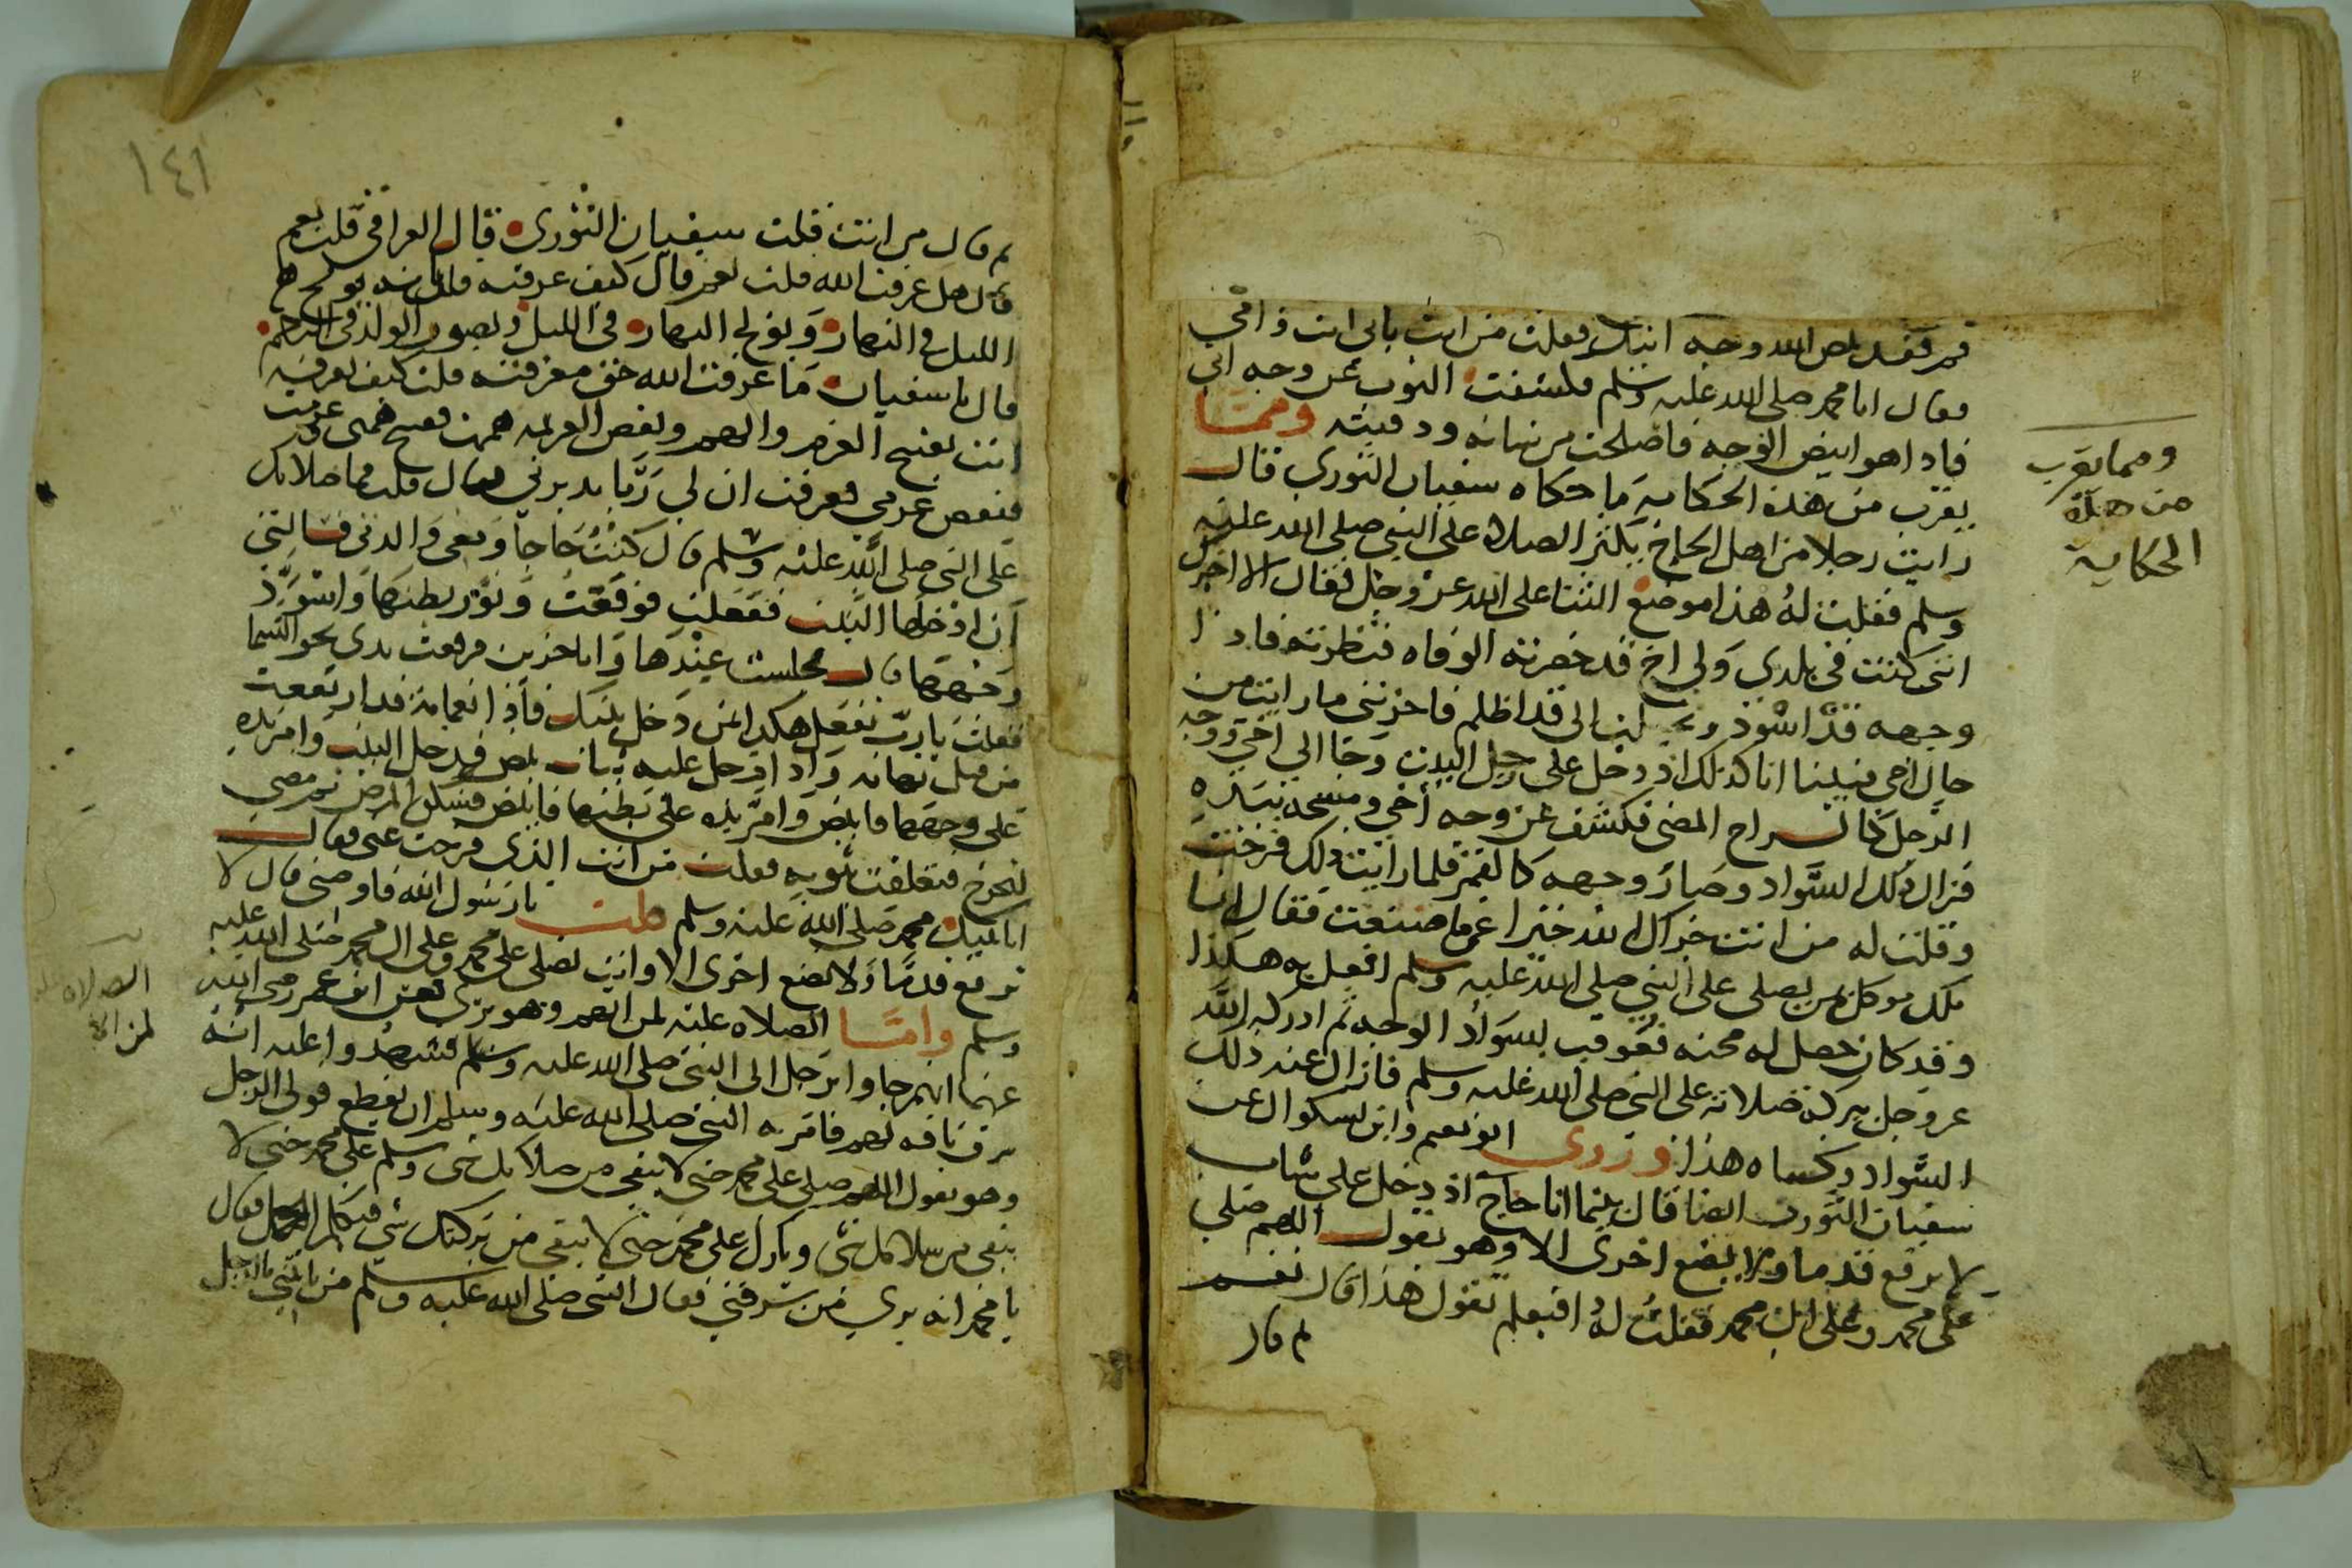 قم فقد بيض الله وجه ابيك فقلت من انت بابي انت وامي
فقال انا محمد صلى الله عليه وسلم فكشفت الثوب عن وجه ابي
فاذا هو ابيض الوجه فاصلحت من شانه ودفنته ومما
يقرب من هذه الحكاية ما حكاه سفيان الثوري قال
رايت رجلا من اهل الحاج يكثر الصلاة على النبي صلى الله عليه
وسلم فقلت له هذا موضع الثنا على الله عز وجل فقال الا اخبرك
انني كنت في بلدي ولي اخ قد حضرته الوفاه فنظرته فاذا
وجهه قد اسود البيت قد اظلم فاحزنني ما رايت من
حال اخي فبينا انا كذلك اذ دخل علي رجل البيت وجا الي اخي ووجه
الرجل كانه السراج المضي فكشف عن وجه اخي ومسحه بيده
فزال ذلك السواد وصار وجهه كالقمر فلما رايت ذلك فرحت
وقلت له من انت جزاك الله خيرا عما صنعت فقال انا
ملك موكل بمن يصلي على النبي صلى الله عليه وسلم افعل به هكذا
وقد كان حصل له محنه فعوقب بسواد الوجه ثم ادركه الله
عز وجل ببركة صلاته على النبي صلى الله عليه وسلم فازال عنه ذلك
السواد وكساه هذا وروى ابو نعيم وابن بشكوال عن
سفيان الثوري ايضا قال بينما انا حاج اذ دخل علي شاب
لا يرفع قدما ولا يضع اخرى الا وهو يقول اللهم صلي
على محمد وعلى ال محمد فقلت له افبعلم تقول هذا قال نعم
ثم قال
ومما يقرب
من هذه
الحكاية
١٤١
ثم قال من انت فقلت سفيان الثوري قال العراقي قلت نعم
قال هل عرفت الله قلت نعم قال كيف عرفته قلت بانه يولج
الليل في النهار ويولج النهار في الليل ويصور الولد في الرحم
قال يا سفيان ما عرفت الله حق معرفته قلت كيف تعرفه
انت بفسخ العزم والهم ونقض العزيمه هممت ففسخ همي وعزمت
فنقض عزمي فعرفت ان لي ربا يدبرني قال قلت فما صلاتك
على النبي صلى الله عليه وسلم قال كنت حاجا ومعي والدتي فسالتني
ان ادخلها البيت ففعلت فوقعت وتورم بطنها واسود
وجهها قال فجلست عندها وانا حزين فرفعت يدي نحو السما
فقلت يا رب تفعل هكذا بمن دخل بيتك فاذا بغمامة قد ارتفعت
من قبل تهامه واذا رجل عليه ثياب بيض فدخل البيت وامر يده
على وجهها فابيض وامر يده على بطنها فابيض فسكن المرض ثم مضى
ليخرج فتعلقت بثوبه فقلت من انت الذي فرجت عني فقال
انا نبيك محمد صلى الله عليه وسلم قلت يا رسول الله فاوصني قال لا
ترفع قدما ولا تضع اخرى الا وانت تصلي على محمد وعلى ال محمد صلى الله عليه
وسلم واما الصلاه عليه لمن اتهم وهو بري فعن ابن عمر رضي الله
عنهما انهم جاوا برجل الى النبي صلى الله عليه وسلم فشهدوا عليه انه
سرق ناقه لهم فامر به النبي صلى الله عليه وسلم ان يقطع فولى الرجل
وهو يقول اللهم صلي على محمد حتى لا يبقى من صلاتك شي وسلم على محمد حتى لا
يبقى من سلامك شي وبارك على محمد حتى لا يبقى من بركتك شي فتكلم الجمل فقال
يا محمد انه بري من سرقتي فقال النبي صلى الله عليه وسلم من ياتيني بالرجل
الصلاه